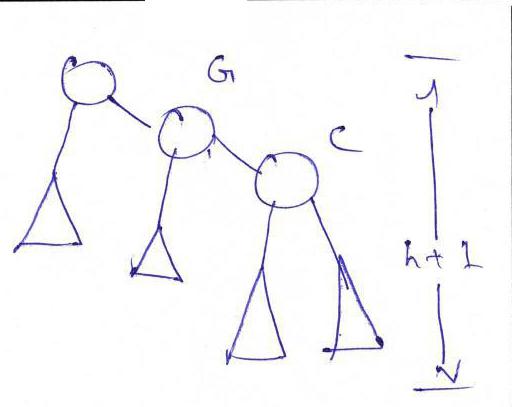 G
C
h+1